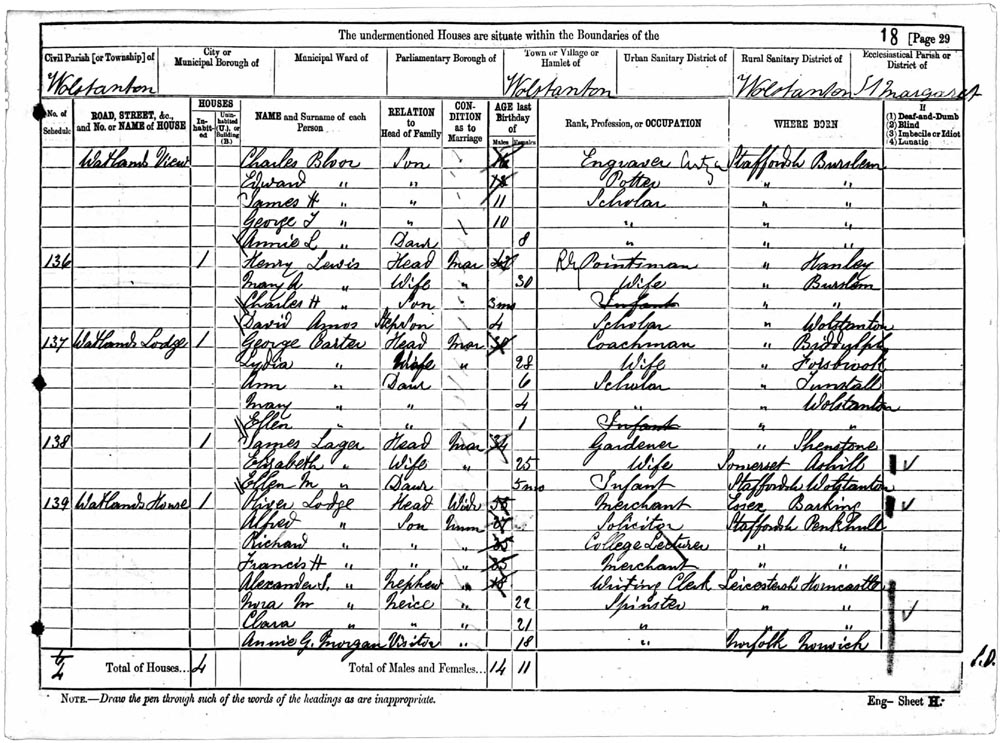 The undermentioned Houses are situate within the Boundaries of the 18 [Page 29
Civil Parish [or Township] of City or Municipal Borough of Municipal Ward of Parliamentary Borough of Town or Village or Hamlet of Urban Sanitary District of Rural Sanitary District of Ecclesiastical Parish or District of
Wolstanton Wolstanton Wolstanton St Margaret
No. of Schedule ROAD, STREET, &c., and No. or NAME of HOUSE HOUSES Inhabited Uninhabited (U.), or Building (B.) NAME and Surname of each Person RELATION to Head of Family CONDITION as to Marriage AGE last Birthday of Males Females Rank, Profession, or OCCUPATION WHERE BORN If (1) Deaf-and-Dumb (2) Blind (3) Imbecile or Idiot (4) Lunatic
Watlands View Charles Bloor Son 16 Engraver Staffordsh Burslem
Edward " " Potter " "
James H " " 11 Scholar " "
George T " " 10 " " "
Annie L " Daur 8 " " "
136 1 Henry Lewis Head Mar Ry Pointsman " Hanley
Mary A " Wife " 30 Wife " Burslem
Charles H " Son 3mo Infant " "
David Amos StepSon 4 Scholar " Wolstanton
137 Watlands Lodge 1 George Carter Head Mar Coachman " Biddulph
Lydia " Wife " 28 Wife " Forsbrook
Ann " Daur 6 Scholar " Tunstall
Mary " " 4 " " Wolstanton
Ellen " " 1 Infant " "
138 1 James Lager Head Mar 34 Gardener " Shenstone
Elizabeth " Wife " 25 Wife Somerset Ashill
Ellen M " Daur 5mo Infant Staffordsh Wolstanton
139 Watlands House 1 Oliver Lodge Head Widr 55 Merchant Essex Barking
Alfred " Son Unm Solicitor Staffordsh Penkhull
Richard " " " College Lecturer " "
Francis H " " " Merchant " "
Alexander " Nephew " 18 Writing Clerk Leicestersh Horncastle
Nora M " Neice " 22 Spinster " "
Clara " " " 21 " " "
Annie G. Morgan Visitor " 18 " Norfolk Norwich
Total of Houses... 4 Total of Males and Females... 14 11
NOTE.—Draw the pen through such of the words of the headings as are inappropriate.
Eng– Sheet H.